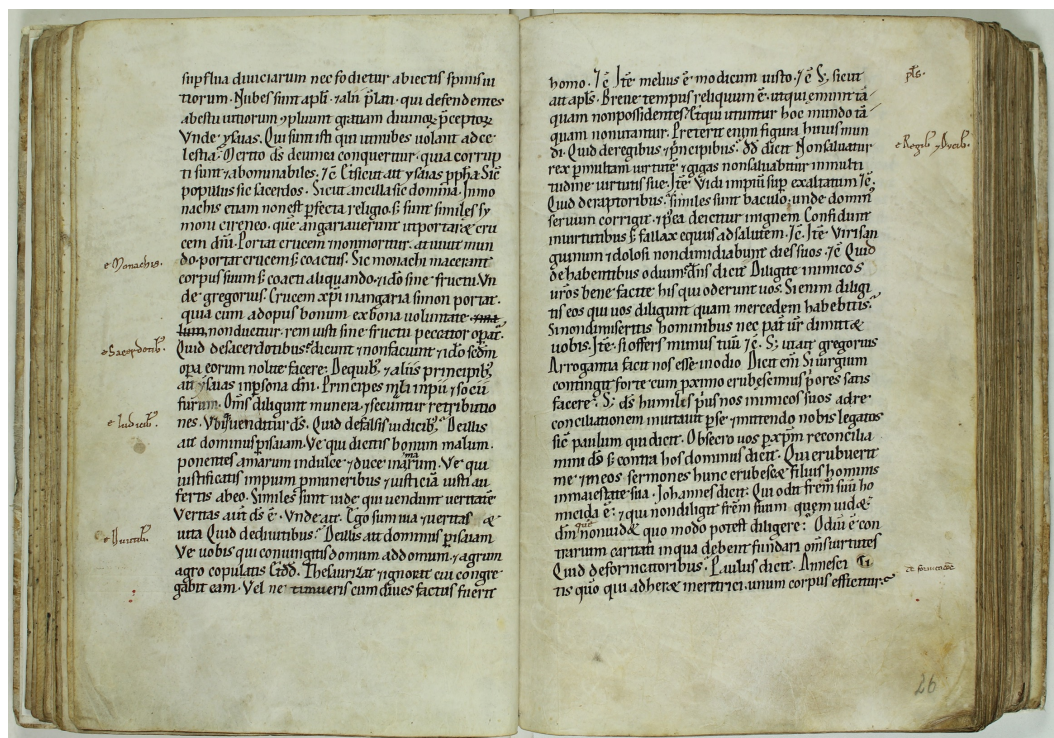 supflua diuiciarum nec fodietur abiectis spinis ui
tiorum. Nubes sunt apli. ⁊ alii plati. qui defendentes
ab estu uitiorum ⁊ pluunt gratiam diuinoꝝ pceptoꝝ
Vnde ysaias. Qui sunt isti qui ut nubes uolant ad ce
lestia. Merito ds de uinea conqueritur. quia corrup
ti sunt ⁊ abominabiles. ⁊c̄ Et sicut ait ysaias ppha. Sic
populus sic sacerdos. Sicut ancilla sic domina. In mo
nachis etiam non est pfecta religio. s; sunt similes sy
moni cireneo. que angariauerunt ut portaret cru
cem dni. Portat crucem ⁊ non moritur. at uiuit mun
do. portat crucem s; coactus. Sic monachi macerant
corpus suum s; coacti aliquando. ⁊ ido sine fructu. Vn
de gregorius. Crucem xpi in angaria simon portat.
quia cum ad opus bonum ex bona uoluntate
non ducitur. rem iusti sine fructu peccator opat.
Quid de sacerdotibus. dicunt ⁊ non faciunt ⁊ ido scdm
opa eorum nolite facere. De quib; ⁊ aliis principib;
ait ysaias in psona dni. Principes mei impii ⁊ socii
furum. Oms diligunt munera. ⁊ secuntur retributio
nes. Quid de falsis iudicib;. De illis
ait dominus p isaiam. Ve qui dicitis bonum malum.
ponentes amarum in dulce. ⁊ dulce in amarum. Ve qui
iustificatis impium p muneribus ⁊ iusticiā iusti au
fertis ab eo. Similes sunt iude qui uendunt ueritatē
Veritas aut ds ē. Vnde ait. Ego sum uia ⁊ ueritas et
uita Quid de diuitibus. De illis ait dominus p isaiam
Ve uobis qui coniungitis domum ad domum. ⁊ agrum
agro copulatis Et dd. Thesaurizat ⁊ ignorat cui congre
gabit eam. Vel ne timueris cum diues factus fuerit
e Monachis.
e Sacerdotib;.
e Iudicib;.
e Diuitib;.
homo. ⁊c̄ Itē melius ē modicum iusto. ⁊c̄ S; sicut
ait apls. Breue tempus reliquum ē. ut qui emunt tā
quam non possidentes. Et qui utuntur hoc mundo tā
quam non utantur. Preterit enim figura huius mun
di. Quid de regibus ⁊ principibus. dd dicit Non saluatur
rex p multam uirtutē ⁊ gigas non saluabitur in multi
tudine uirtutis sue. Itē Vidi impiū sup exaltatum ⁊c̄.
Quid de raptoribus. similes sunt baculo. unde domin
seruum corrigit. ⁊ p ea deicitur in ignem Confidunt
in uirtutibus s; fallax equus ad salutem. ⁊c̄. Itē Viri san
guinum ⁊ dolosi non dimidiabunt dies suos. ⁊c̄ Quid
de habentibus odium. dns dicit Diligite inimicos
uros bene facite his qui oderunt uos. Si enim diligi
tis eos qui uos diligunt quam mercedem habebitis.
Si non dimiseritis hominibus nec pat ur dimittet
uobis. Itē. si offers munus tuū ⁊c̄. S; ut ait gregorius
Arrogantia facit nos esse in odio Dicit em Si iurgium
contingit forte cum pximo erubescimus priores satis
facere. S; ds humilis prius nos inimicos suos ad re
conciliationem inuitauit p se ⁊ mittendo nobis legatos
sic paulum qui dicit. Obsecro uos p xpm reconcilia
mini do s; contra hos dominus dicit. Qui erubuerit
me ⁊ meos sermones hunc erubescet filius hominis
in maiestate sua. Iohannes dicit. Qui odit frem suū ho
micida ē. ⁊ qui non diligit frem suum quem uidet
dm que non uidet quo modo potest diligere. Odiū ē con
trarium caritati in qua debent fundari oms uirtutes
Quid de fornicatoribus. Paulus dicit. An nesci
tis quo qui adheret meretrici. unum corpus efficitur.
pls.
e Regib; ⁊ Ducib;.
de fornicatione
26